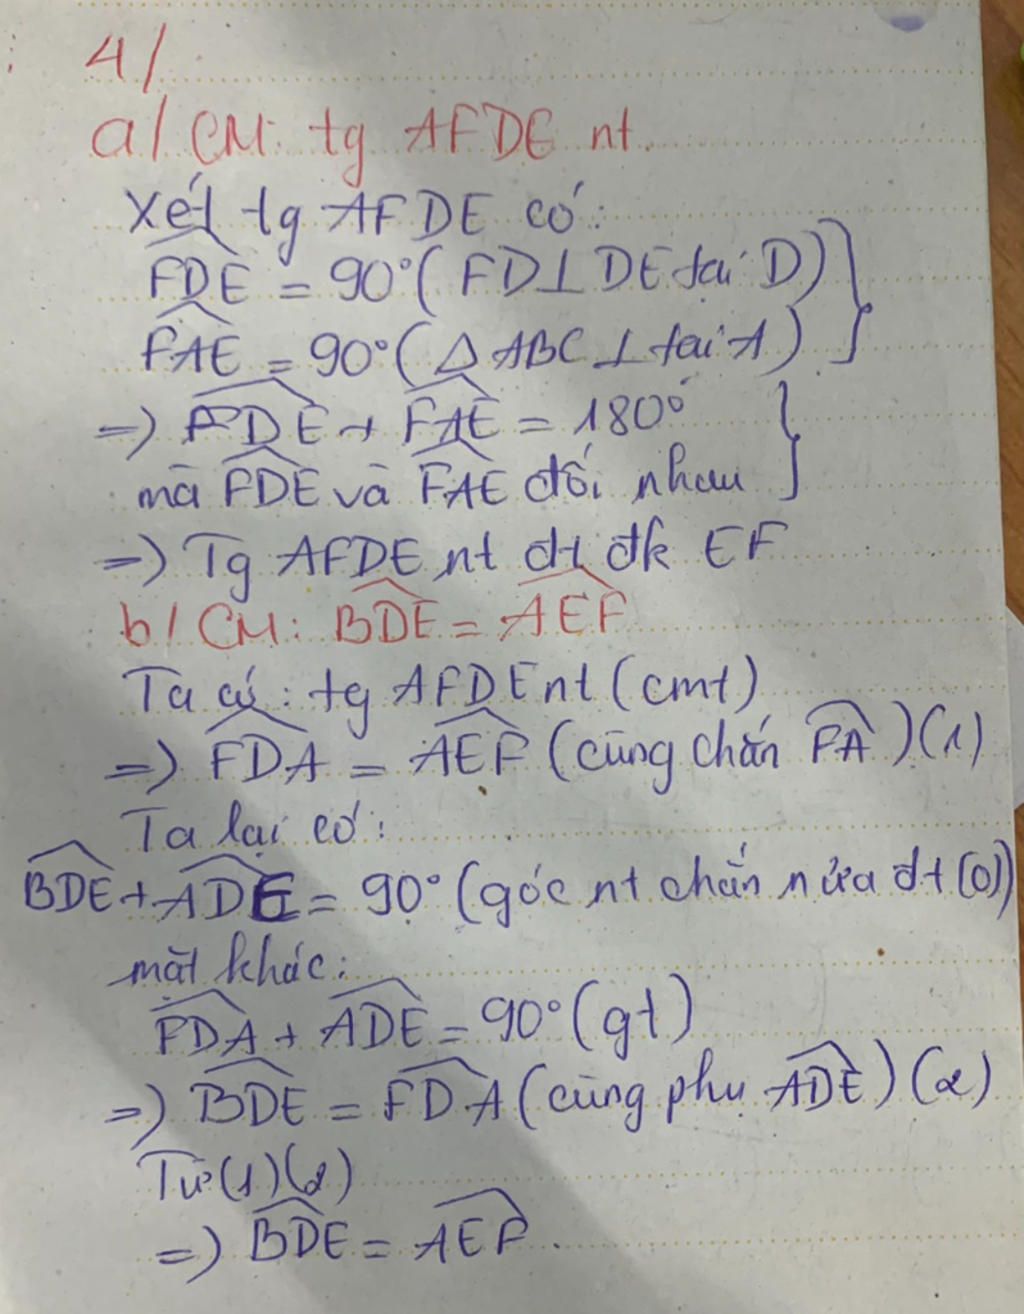 4/
a/ CM: tg AFDE nt.
Xét tg AFDE có:
FDE = 90° ( FD⊥DE tại D) }
FAE = 90° ( △ABC ⊥ tại A) }
=) FDE + FAE = 180° }
mà FDE và FAE đối nhau }
=) Tg AFDE nt đt đk EF
b/ CM: BDE = AEF
Ta có: tg AFDE nt (cmt)
=) FDA = AEF (cùng chắn FA) (1)
Ta lại có:
BDE + ADE = 90° (góc nt chắn nửa đt (O))
mặt khác:
FDA + ADE = 90° (gt)
=) BDE = FDA (cùng phụ ADE) (2)
Từ (1)(2)
=) BDE = AEF.